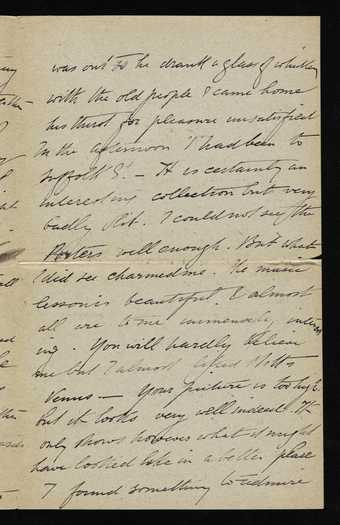 was out so he drank a glass of whiskey
with the old people & came home
his thirst for pleasure unsatisfied
In the afternoon I had been to
Suffolk St. — It is certainly an
interesting collection but very
badly lit. I could not see the
well enough. But what
I did see charmed me. The music
lesson is beautiful. & almost
all are to me immensely interes
ing. You will hardly believe
me but I almost liked Watts
Venus — Your picture is too high
but it looks very well indeed. It
only shows however what it might
have looked like in a better place
I found something to admire